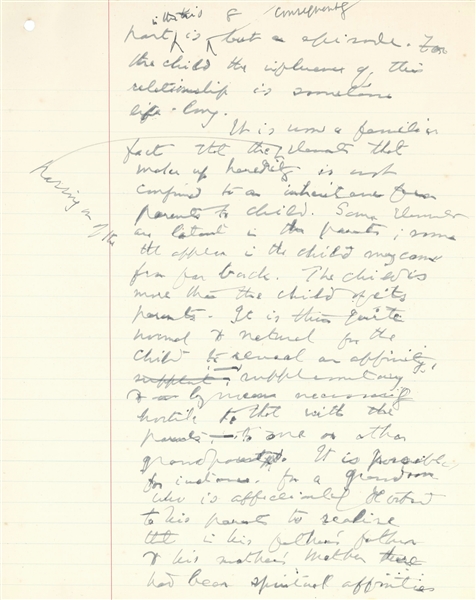 in this & consequently
part is but an episode. For
the child the influence of this
relationship is sometimes
life-long.
It is now a familiar
fact that the elements that
make up heredity is not
confined to an inheritance from
parents to child. Some elements
are latent in the parents; some
tht appear in the child may come
from far back. The child is
more than the child of its
parents. It is thus quite
normal & natural for the
child to reveal an affinity,
supplementary
& by no means necessarily
hostile to that with the
parents, — to one or other
grandparents. It is possible
for instance for a grandson
who is affectionately devoted
to his parents to realise
tht in his father's father
& his mother's mother there
had been spiritual affinities
Passing on of life